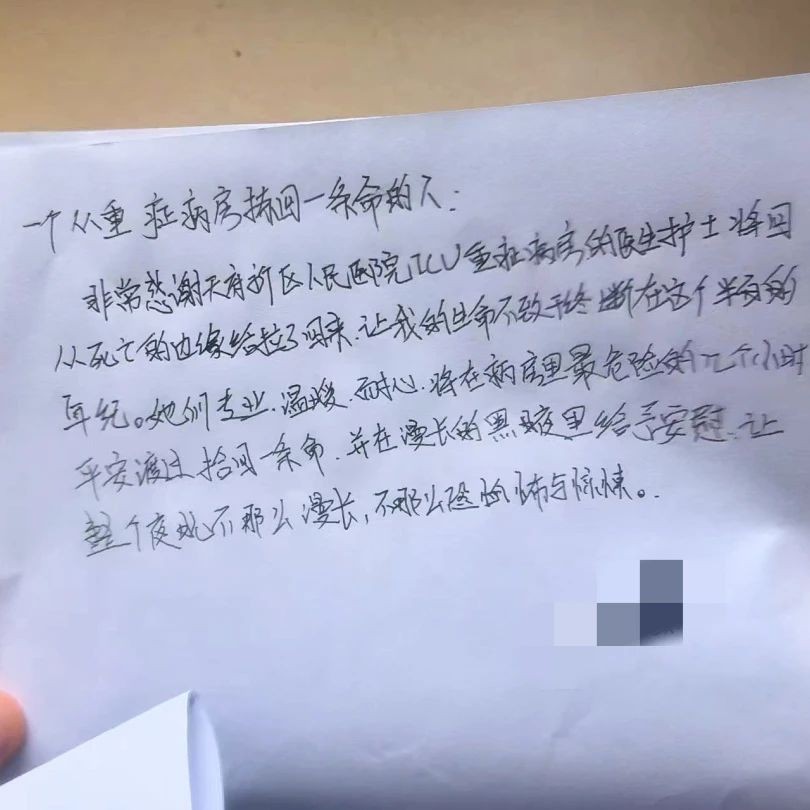 一个从重症病房捡回一条命的人:
非常感谢天府新区人民医院ICU重症病房的医生护士将因
从死亡的边缘给拉了回来,让我的生命不致于终断在这个半百的
年纪。她们专业、温暖、耐心,将在病房里最危险的几个小时
平安渡过拾回一条命,并在漫长的黑夜里给予安慰,让
整个夜晚不那么漫长,不那么恐怖与惊悚。